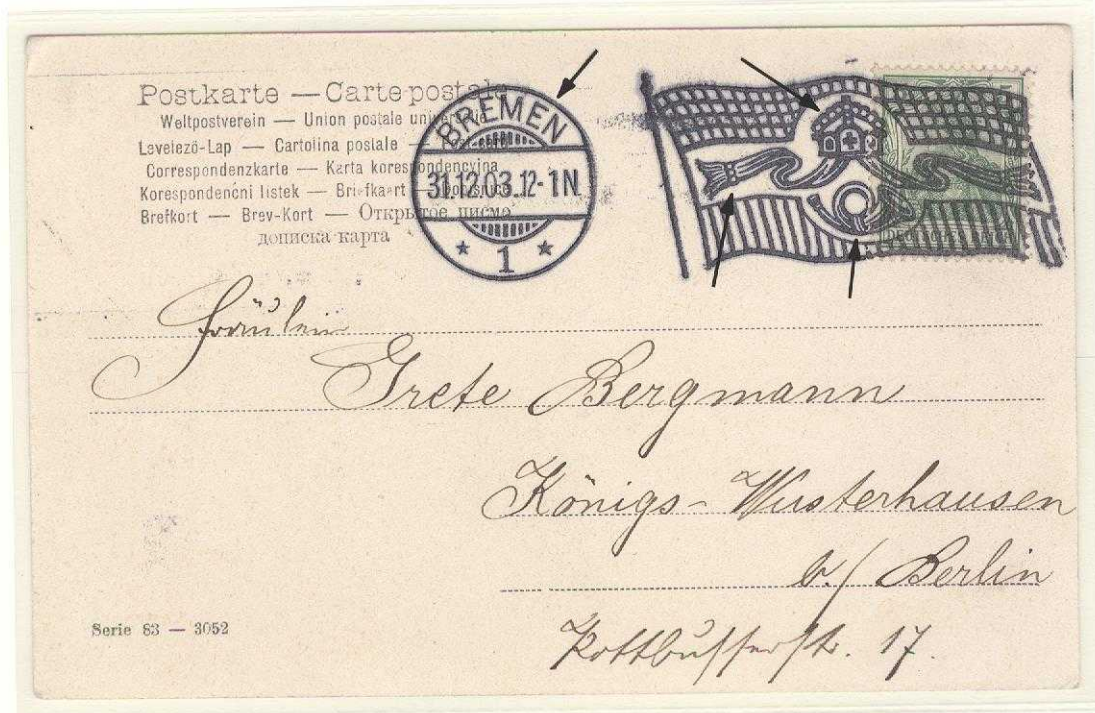 Postkarte — Carte postale
Weltpostverein — Union postale universelle
Levelező-Lap — Cartolina postale —
Correspondenzkarte — Karta korespondencyjna
Korespondenční listek — Briefkaart — Dopisnica
Brefkort — Brev-Kort — Открытое письмо
дописна карта
BREMEN
31.12.03.12-1N.
* 1 *
Fräulein
Grete Bergmann
Königs-Wusterhausen
b./ Berlin
Kottbusserstr. 17.
Serie 83 — 3052